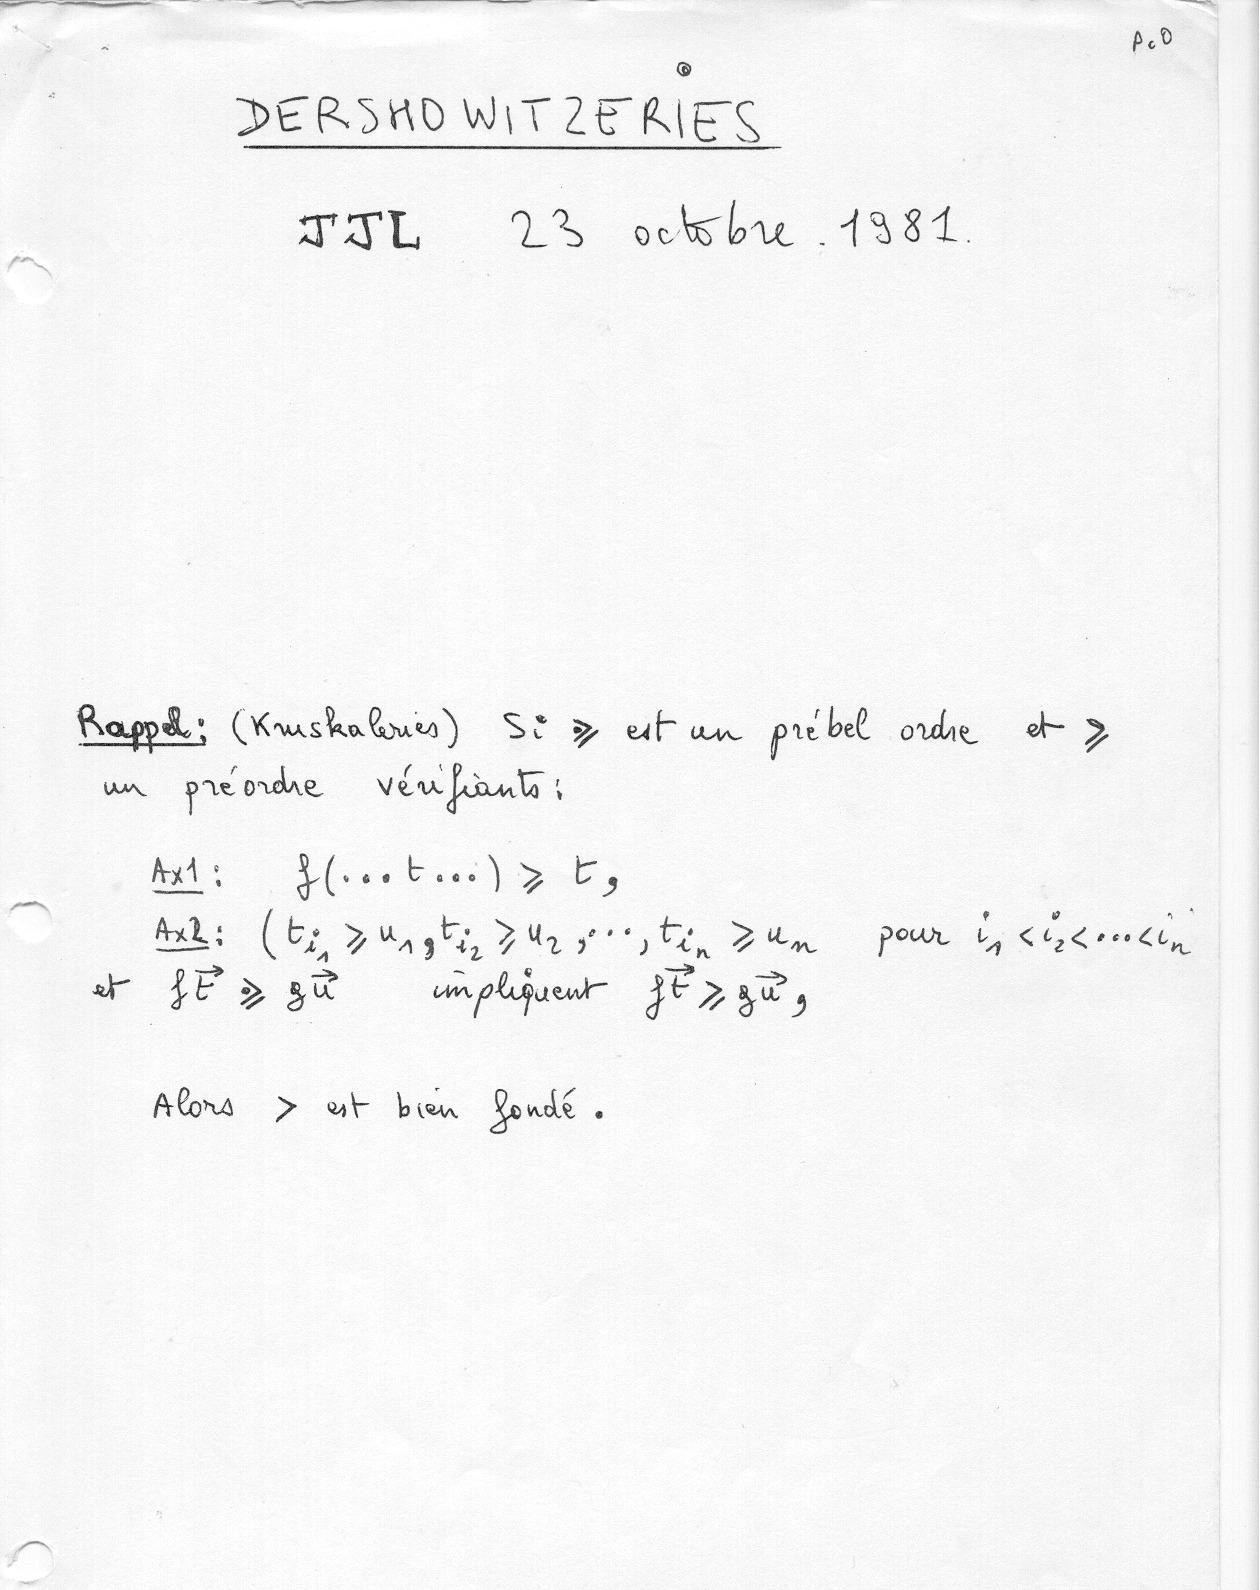 p.0
DERSHOWITZERIES
JJL 23 octobre. 1981.
Rappel: (Kruskaleries) Si ⩾· est un prébel ordre et ⩾
un préordre vérifiants:
Ax1: f(...t...) ⩾ t,
Ax2: (t_{i_1} ⩾ u_1, t_{i_2} ⩾ u_2, ..., t_{i_n} ⩾ u_n pour i_1 < i_2 < ... < i_n
et f\vec{t} ⩾· g\vec{u} impliquent f\vec{t} ⩾ g\vec{u},
Alors > est bien fondé.